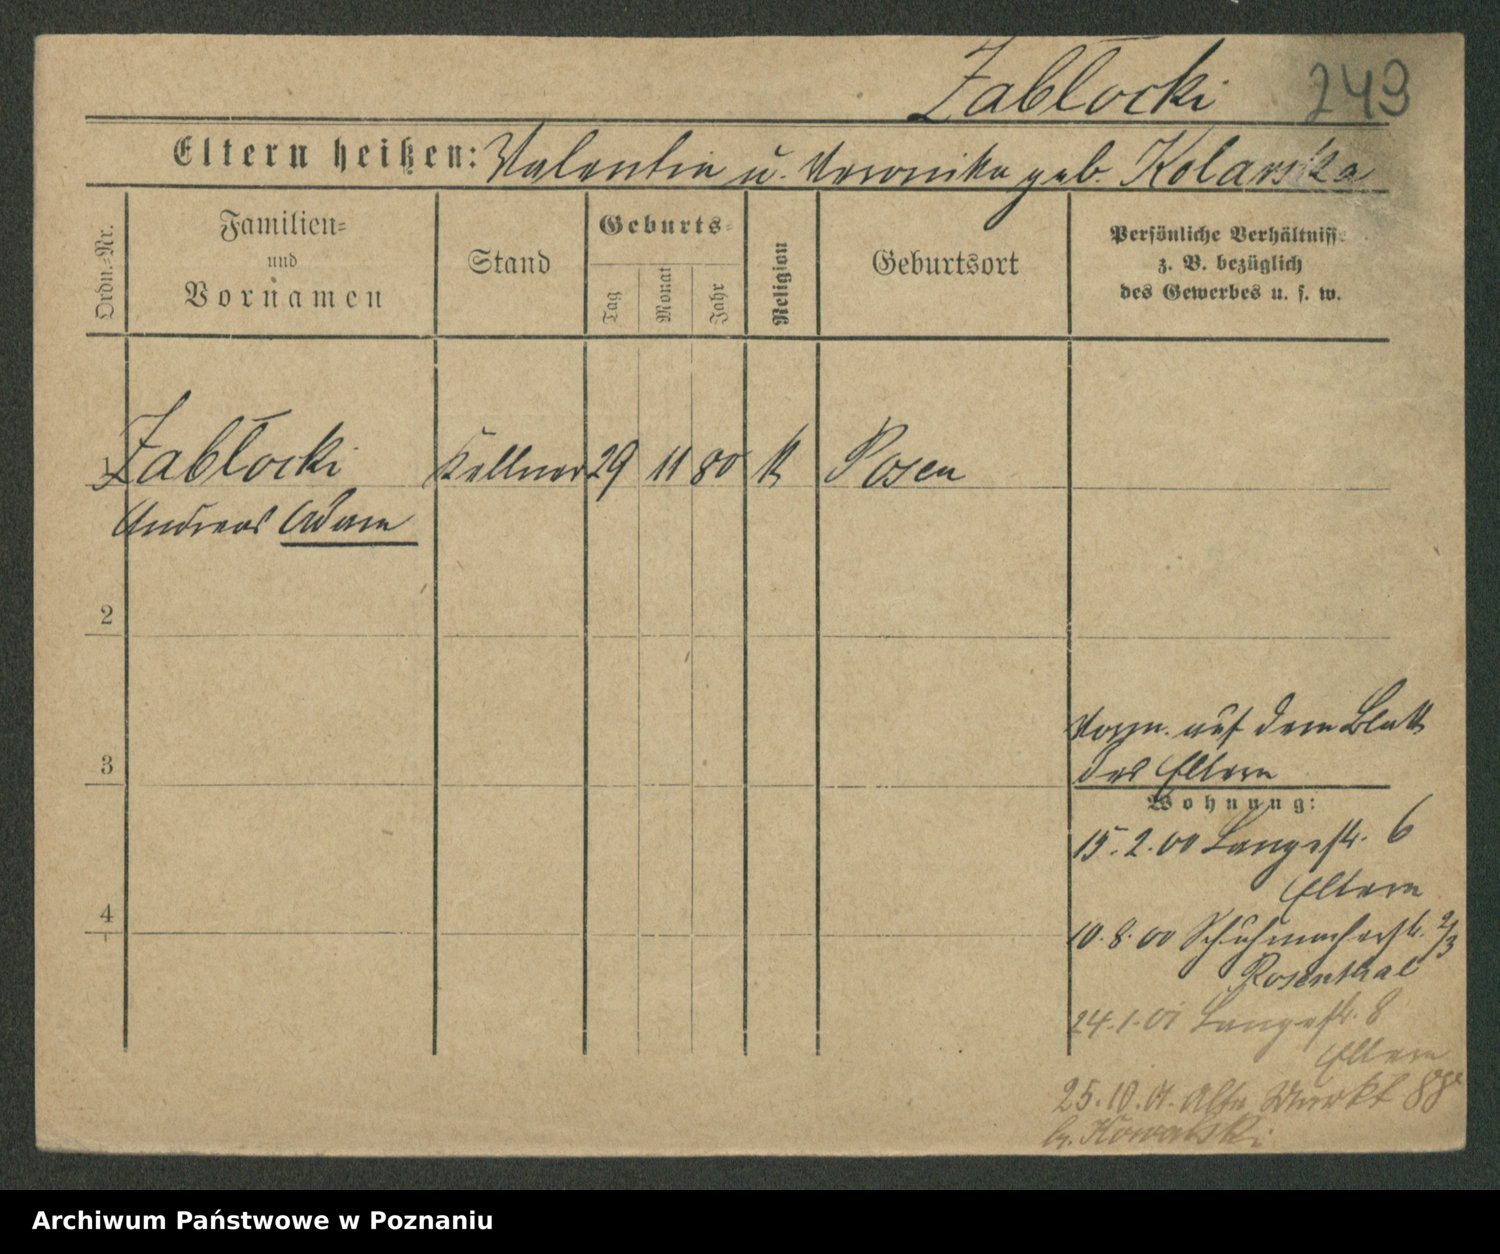 Zabłocki 249
Eltern heißen: Valentin u. Veronika geb. Kolarska
Ordn.-Nr.
Familien-
und
Vornamen
Stand
Geburts-
Tag
Monat
Jahr
Religion
Geburtsort
Persönliche Verhältnisse
z. B. bezüglich
des Gewerbes u. s. w.
1 Zabłocki Kellner 29 11 80 k Posen
Andreas Adam
2
3
4
auf dem Blatt
der Eltern
Wohnung:
15.2.00 Langestr. 6
Eltern
10.8.00 Schuhmacherstr. 2/3
Rosenthal
24.1.01 Langestr. 8
Eltern
25.10.01. Alte Markt 88
b. Kowalski
Archiwum Państwowe w Poznaniu